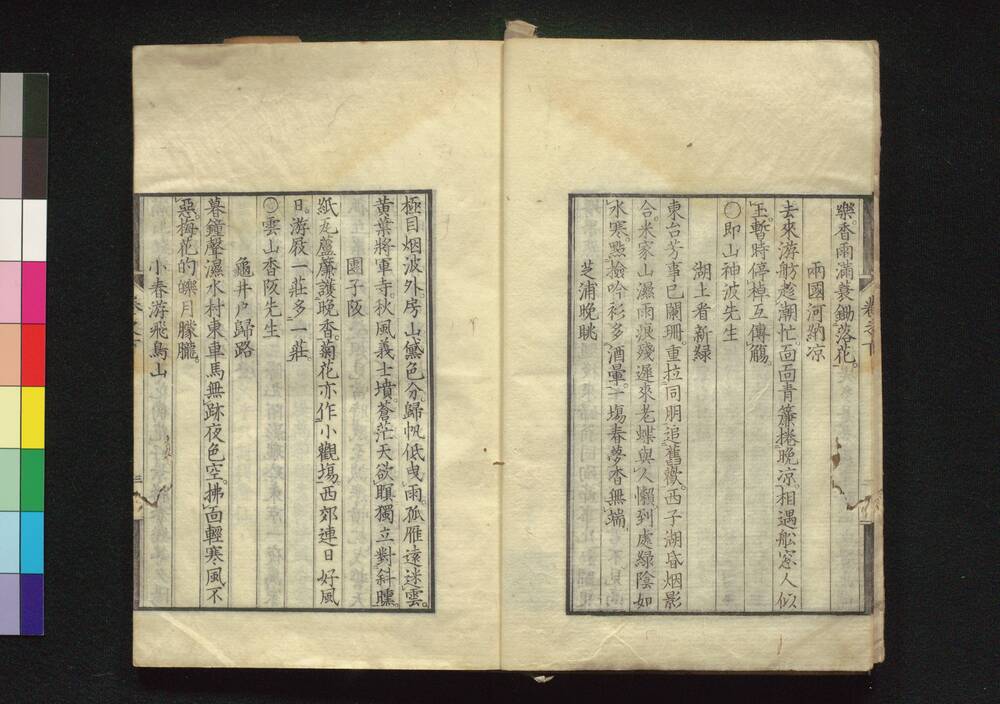 樂。香雨滿蓑鋤落花。
兩國河納凉
去來游舫趁潮忙面面青簾捲晚凉。相遇舩窓人似
玉。暫時停棹互傳觴。
〇即山神波先生
湖上看新綠
東台芳事已闌珊。重拉同朋追舊歡。西子湖昏烟影
合。米家山濕雨淚殘遲來老蝶與人懶。到處綠陰如
水寒。點撿吟衫多酒暈。一塲春夢杳無端。
芝浦晚眺
極目烟波外。房山黛色分。歸帆低曳雨。孤雁遠迷雲。
黄葉將軍寺。秋風義士墳。蒼茫天欲暝獨立對斜曛。
團子阪
紙瓦蘆簾護晚香。菊花亦作小觀塲。西郊連日好風
日。游屐一莊多一莊
〇雲山杳阪先生
龜井戸歸路
暮鐘聲濕水村東車馬無跡夜色空。拂面輕寒風不
惡。梅花的皪月朦朧。
小春游飛鳥山